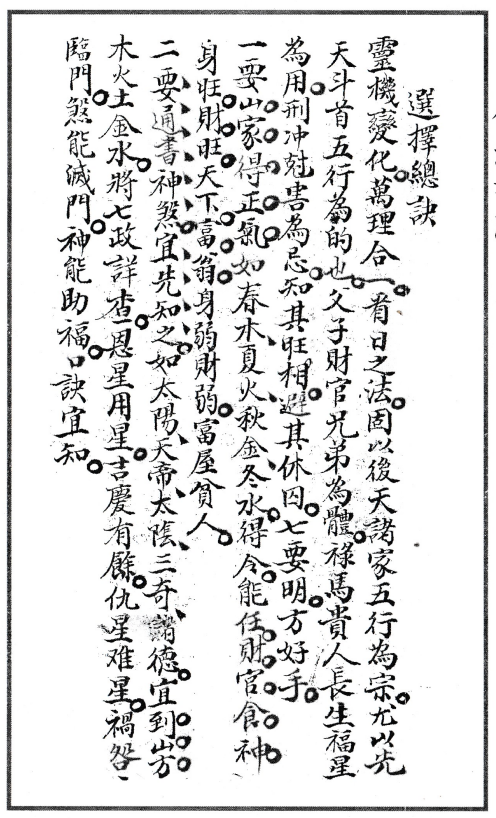 選擇總訣
靈機變化。萬理合一。看日之法。固以後天諸家五行為宗。尤以先
天斗首五行為的也。父子財官兄弟為體。祿馬貴人長生福星
為用。刑冲尅害為忌。知其旺相。避其休囚。七要明。方好手。
一要山家得正氣。如春木夏火、秋金、冬水。得令能任財官食神、
身旺財旺。天下富翁。身弱財弱。富屋貧人。
二要通書神煞。宜先知之。如太陽、天帝、太陰、三奇、諸德。宜到山方。
木火土金水。將七政詳查。恩星用星。吉慶有餘。仇星难星。禍咎、
臨門。煞能滅門。神能助福。口訣宜知。